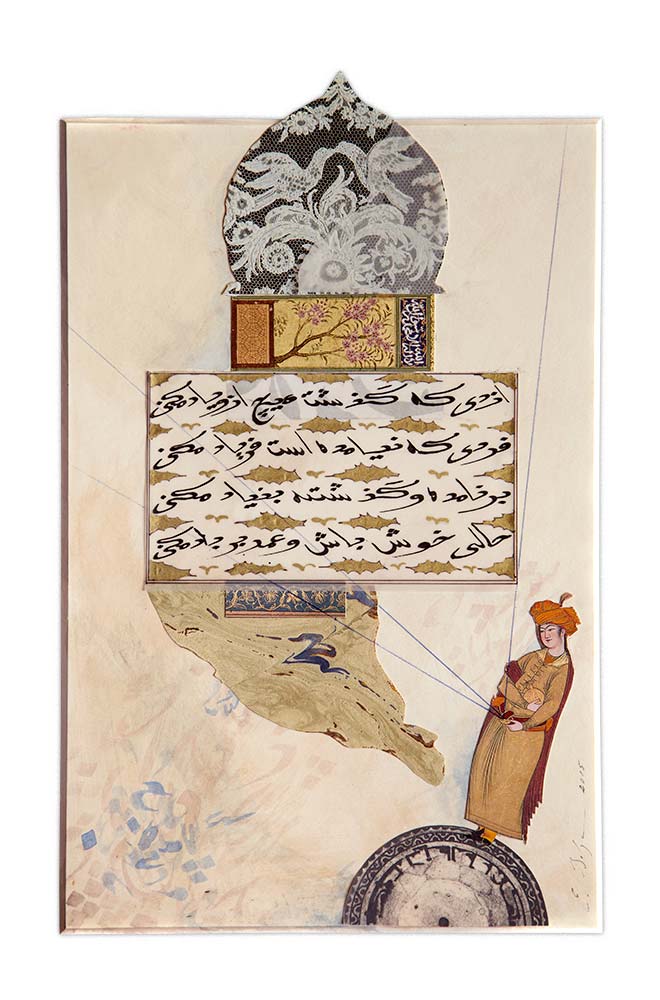 از دی که گذشت هیچ ازو یاد مکن
فردی که نیامده است فریاد مکن
بر نامده و گذشته بنیاد مکن
حالی خوش باش و عمر بر باد مکن
2015